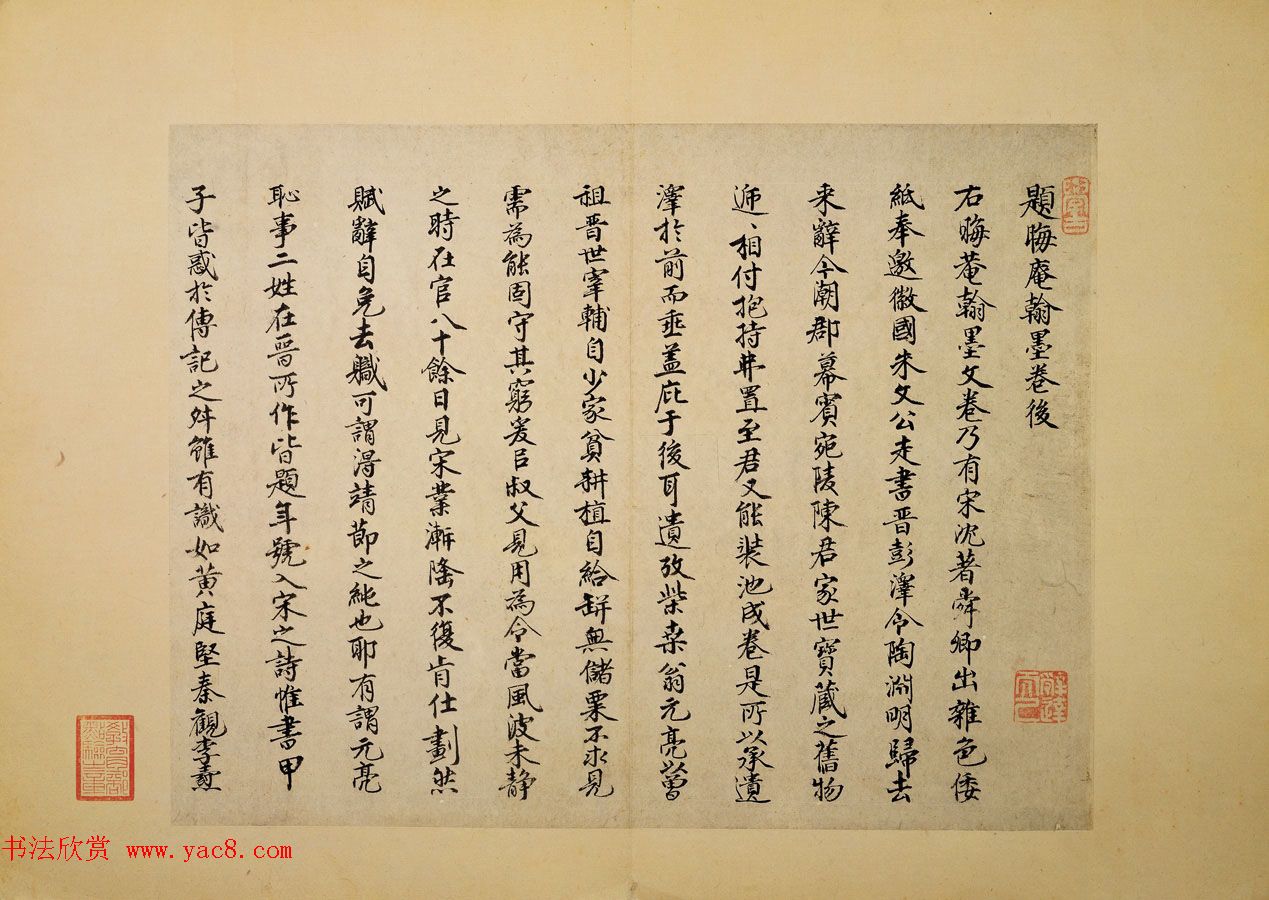 題晦庵翰墨卷後
右晦菴翰墨文卷乃有宋沈著舜卿出雜色倭
紙奉邀徽國朱文公走書晉彭澤令陶淵明歸去
来辭今潮郡幕賓宛陵陳君家世寶藏之舊物
逓、相付抱持井置至君又能裝池成卷是所以承遺
澤於前而垂蓋庇于後耳遺攷柴桒翁元亮以曾
祖晉世宰輔自少家貧耕植自給缾無儲粟不求見
需為能固守其窮爰㠯叔父見用為令當風波未静
之時在官八十餘日見宋業漸隆不復肯仕劃然
賦辭自免去職可謂淂靖節之純也耶有謂元亮
恥事二姓在晉所作皆題年號入宋之詩惟書甲
子皆惑於傳記之舛雖有識如黃庭堅秦觀李燾
书法欣赏 www.yac8.com